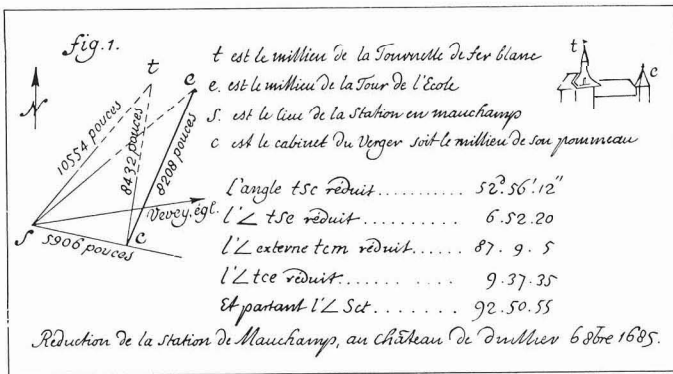 fig. 1.
N
t
e
10554 pouces
8432 pouces
8208 pouces
Vevey. égl.
S
5906 pouces
c
t est le millieu de la Tournelle de fer blanc
e. est le millieu de la Tour de l'Ecole
S. est le lieu de la Station en mauchamp
c est le cabinet du Verger soit le millieu de son pommeau
t
e
L'angle tsc réduit .......... 52ᵈ. 56'. 12"
l'∠ tSe réduit .......... 6. 52. 20
l'∠ externe tcm réduit ...... 87. 9. 5
l'∠ tce réduit .......... 9. 37. 35
Et partant l'∠ Sct ........ 92. 50. 55
Reduction de la Station de Mauchamp, au Château de duillier 6 8bre 1685.